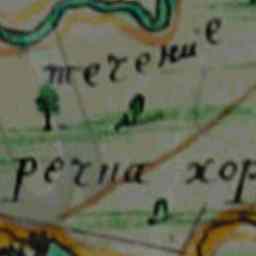 течение
речпа хор